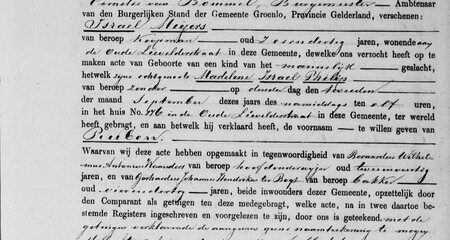 Cornelis van Bommel, Burgemeester Ambtenaar
van den Burgerlijken Stand der Gemeente Groenlo, Provincie Gelderland, verschenen:
Israel Meijers
van beroep Koopman oud Zesendertig jaren, wonende aan
de Oude Lievelderstraat in deze Gemeente, dewelke ons versocht heeft op te
maken acte van Geboorte van een kind van het mannelijk geslacht,
hetwelk zijne echtgenoote Madelene Israel Philips
van beroep zonder op dinsdag den tweeden
der maand September dezes jaars des namiddags ten elf uren,
in het huis No. 176 in de Oude Lievelderstraat in deze Gemeente, ter wereld
heeft gebragt, en aan hetwelk hij verklaard heeft, de voornaam te willen geven van
Ruben
Waarvan wij deze acte hebben opgemaakt in tegenwoordigheid van Bernardus Wilhel-
mus Antonius van beroep oud tweeenveertig
jaren, en van Gerhardus Johannes Hendrikus te Bogt van beroep bakker
oud vierendertig jaren, beide inwoonders dezer Gemeente, opzettelijk door
den Comparant als getuigen ten deze medegebragt, welke acte, na in twee daartoe be-
stemde Registers ingeschreven en voorgelezen te zijn, door ons is geteekend met de
getuigen verklarende de aangever geene naamteekening te mogen